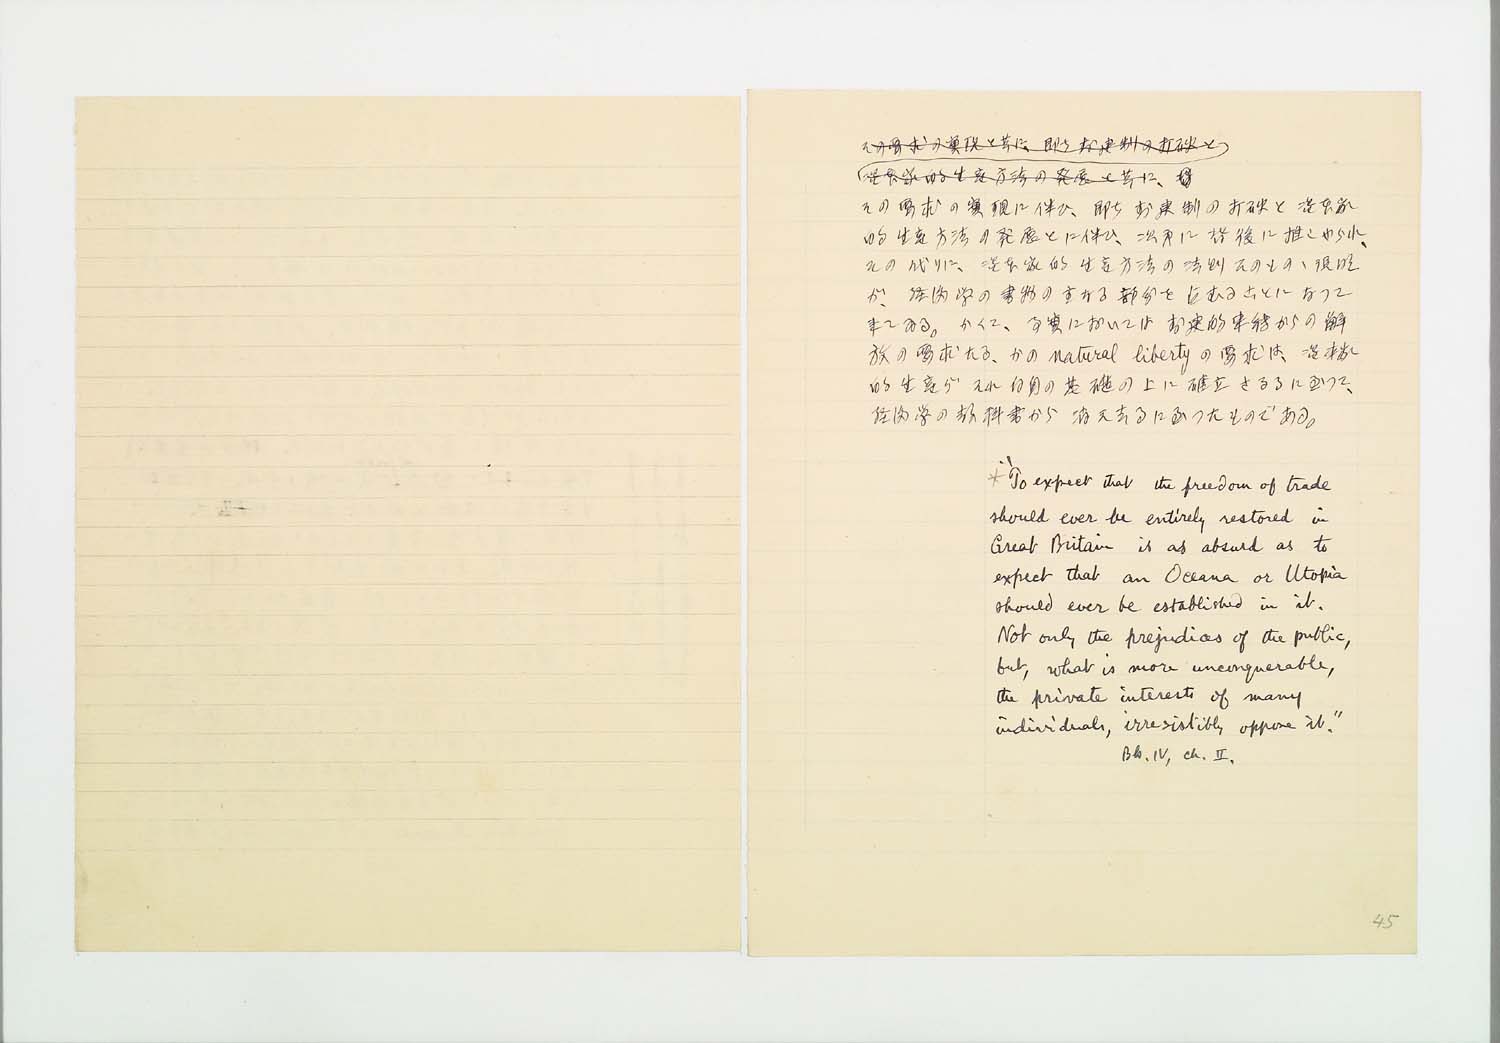 その要求の実現と共に、即ち封建制の打破と
資本家的生産方法の発展と共に、
その要求の実現に伴ひ、即ち封建制の打破と資本家
的生産方法の発展とに伴ひ、次第に背後に推しやられ、
その代りに、資本家的生産方法の法則そのものゝ
が、経済学の書物の主なる部分を占むることになつて
来てゐる。かくて、事実においては封建的束縛からの解
放の要求たる、かの natural liberty の要求は、資本家
的生産がそれ自身の基礎の上に確立さるるに至つて、
経済学の教科書から消え去るに至つたものである。
*"To expect that the freedom of trade
should ever be entirely restored in
Great Britain is as absurd as to
expect that an Oceana or Utopia
should ever be established in it.
Not only the prejudices of the public,
but, what is more unconquerable,
the private interests of many
individuals, irresistibly oppose it."
Bk. IV, ch. II.
45